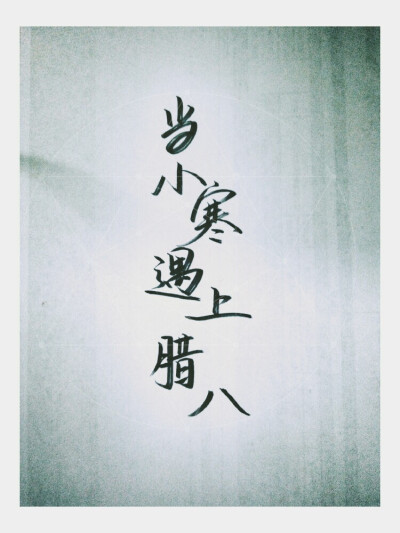 当小寒遇上腊八